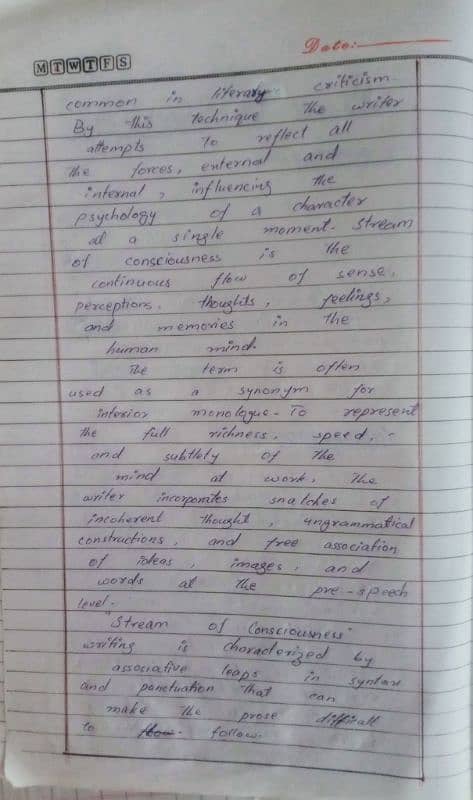 Date:
M T W T F S
common in literary criticism.
By this technique the writer
attempts to reflect all
the forces, external and
internal, influencing the
psychology of a character
at a single moment. Stream
of consciousness is the
continuous flow of sense,
perceptions, thoughts, feelings,
and memories in the
human mind.
The term is often
used as a synonym for
interior monologue. To represent
the full richness, speed,
and subtlety of the
mind at work, the
writer incorporates snatches of
incoherent thought, ungrammatical
constructions, and free association
of ideas, images, and
words at the pre-speech
level.
"Stream of Consciousness"
writing is characterized by
associative leaps in syntax
and punctuation that can
make the prose difficult
to follow.